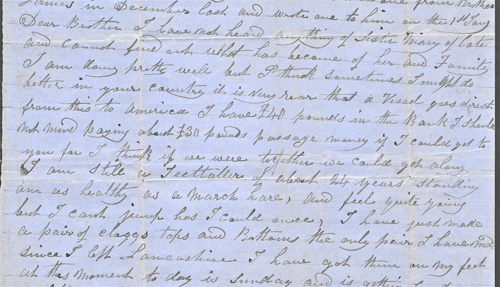 James in December last and wrote one to him on the 1st Jany
Dear Brother I have not heard anything of Sister Mary of late
and cannot find out what has become of her and Family
I am doing pretty well but I think sometimes I might do
better in your country it is very rear that a Vessel goes direct
from this to America I have £40 pounds in the Bank I should
not mind paying about £30 pounds passage money if I could get to
you for I think if we were together we could get along
I am still a Teetotaller of about 24 years standing
am as healthy as a march hare, and feel quite young
but I cant jump has I could once, I have just made
a pair of claggs tops and Bottoms the only pair I have made
since I left Lancashire I have got them on my feet
at this moment to day is Sunday and is